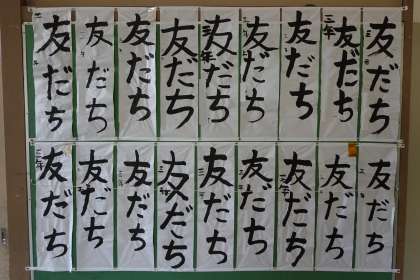 友だち
友だち
友だち
友だち
友だち
三年
友だち
友だち
友だち
三年
友だち
友だち
三年
友だち
友だち
友だち
友だち
友だち
友だち
三年
友だち
友だち
友だち